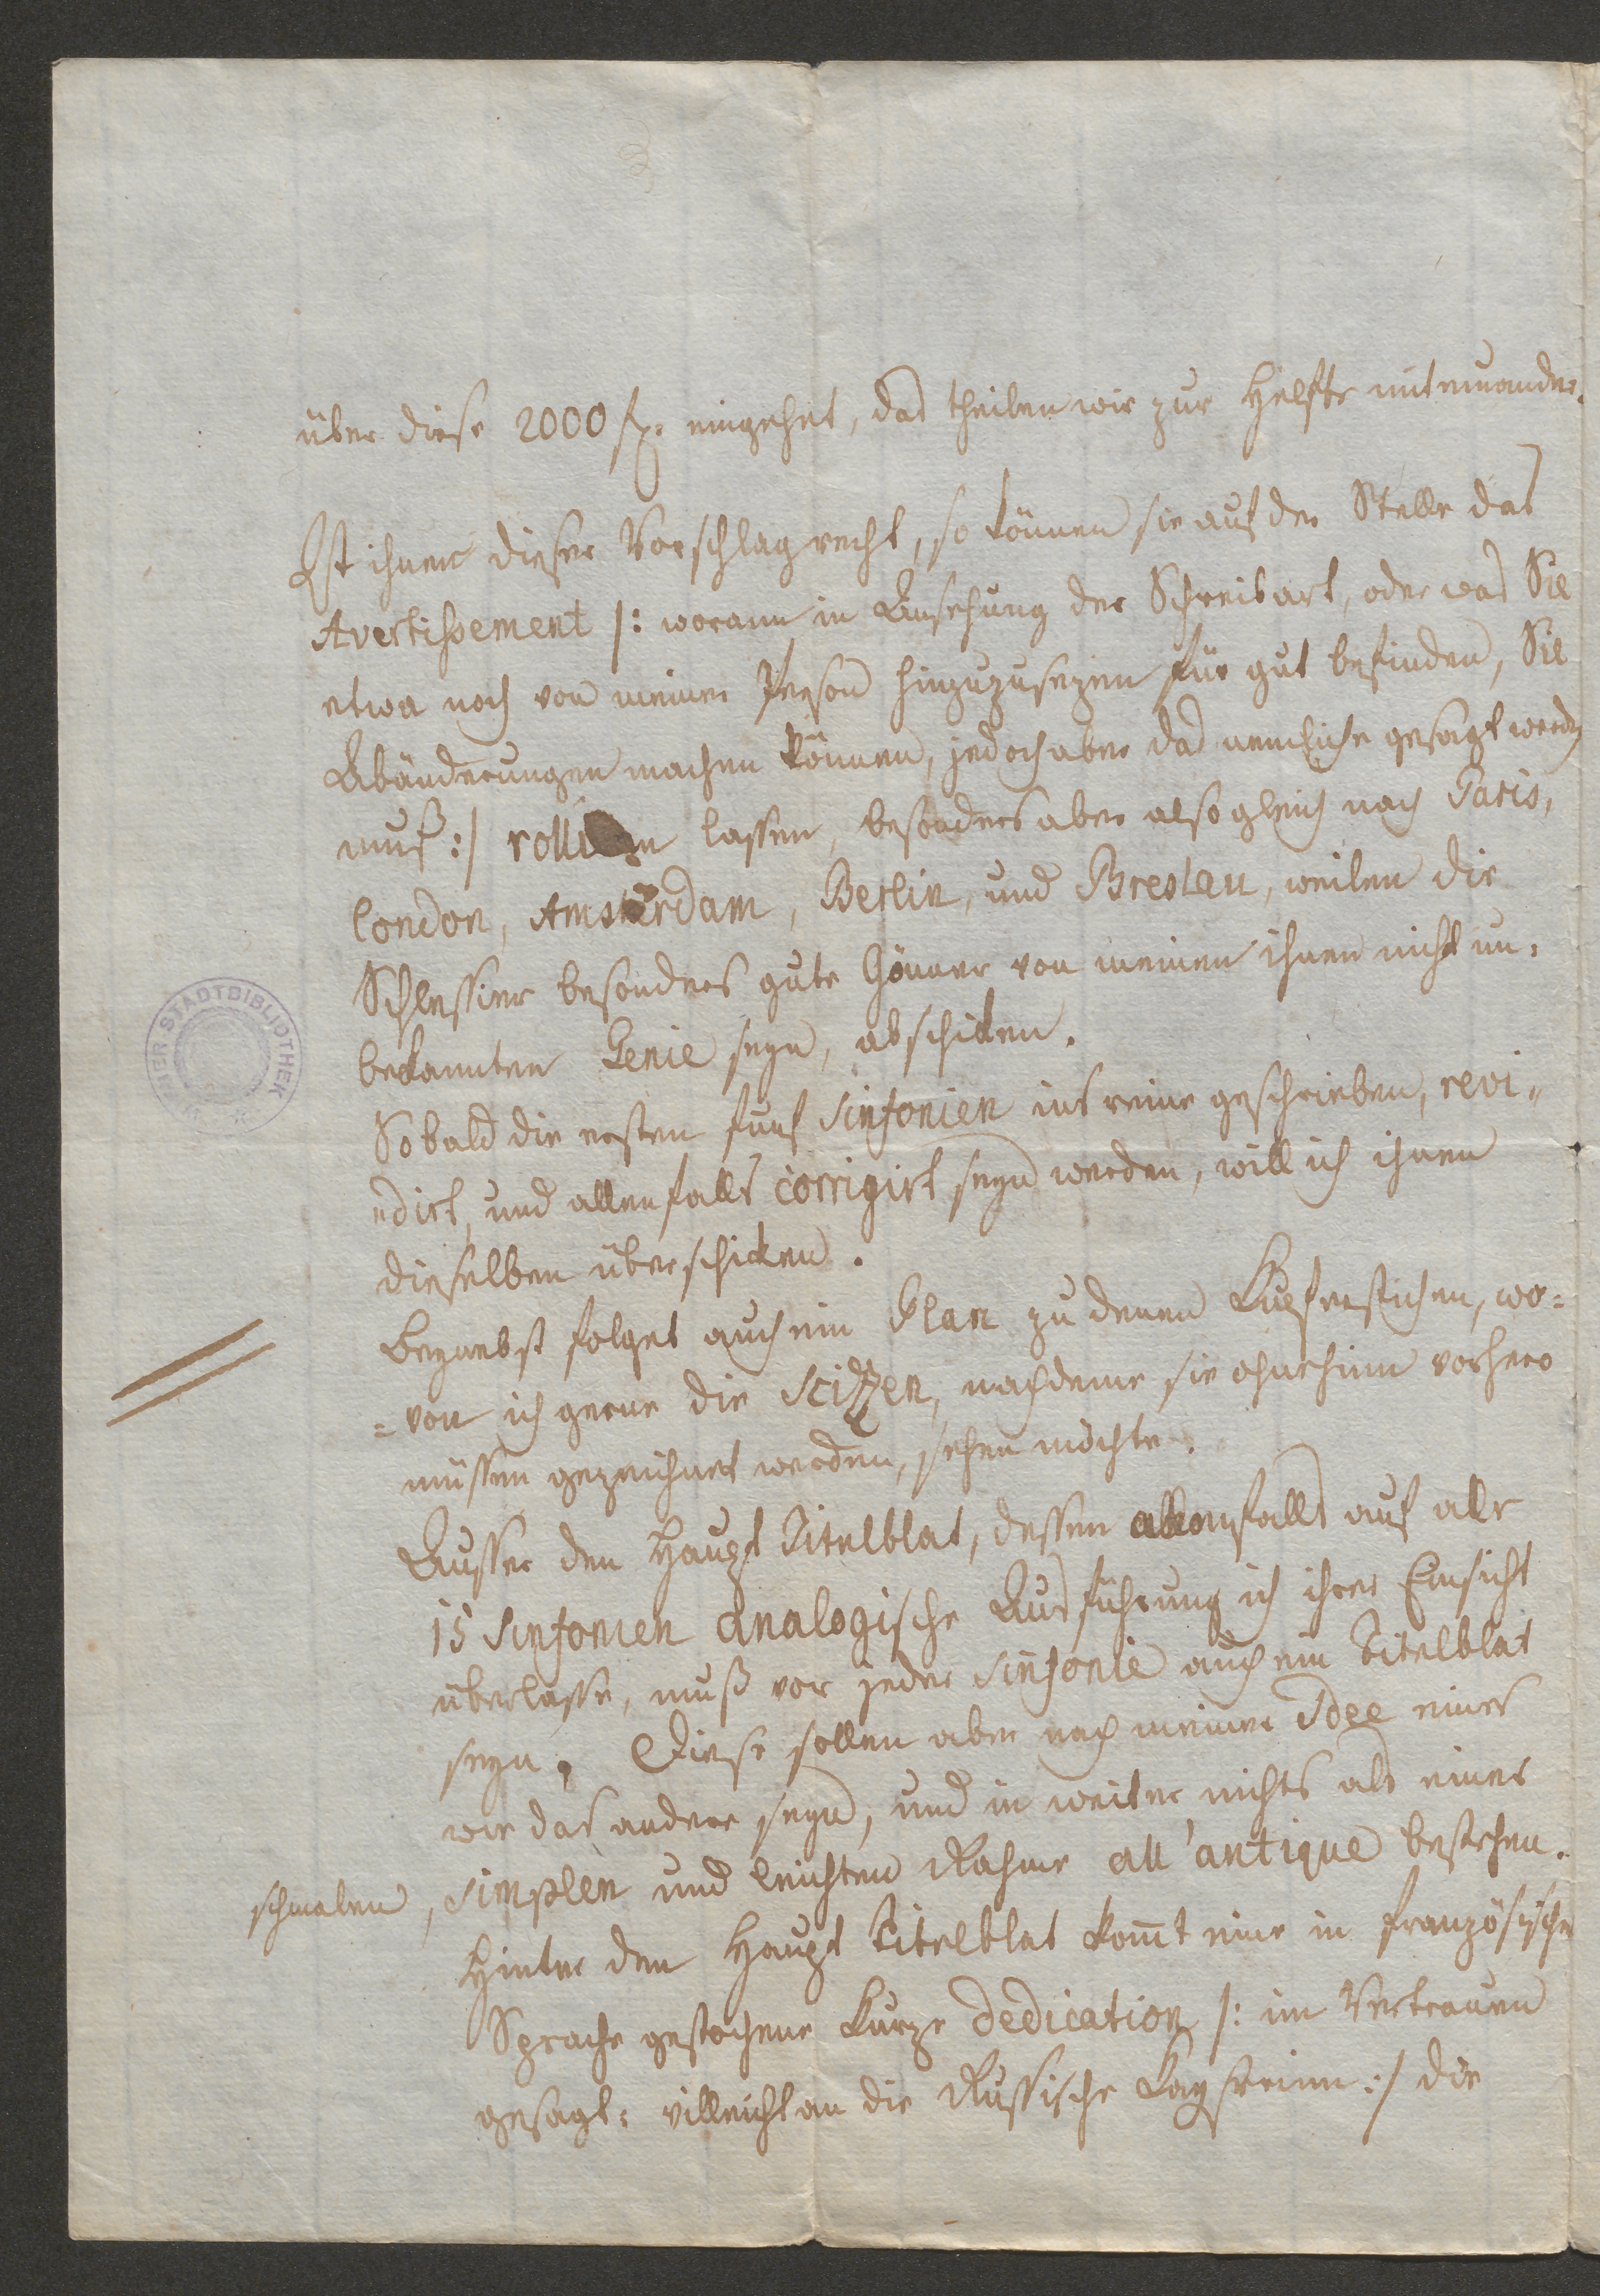 über diese 2000 f. eingehet, das theilen wir zur Helfte mit einander.
Ist ihnen dieser Vorschlag recht, so können sie auf der Stelle das
Avertissement /: woran in Ansehung der Schreibart, oder was Sie
etwa noch von meiner Person hinzuzusezen für gut befinden, Sie
Abänderungen machen können, jedoch aber das nemliche gesagt werden
muß :/ rolliren lassen, besonders aber alsogleich nach Paris,
London, Amsterdam, Berlin, und Breslau, weilen die
Schlessier besonders gute Gönner von meinen ihnen nicht un=
bekannten Genie seyn, abschicken.
Sobald die ersten fünf Sinfonien ins reine geschrieben, revi=
=dirt, und allenfalls corrigirt seyn werden, will ich ihnen
dieselben überschicken.
Beynebst folget auch ein Plan zu denen Kupferstichen, wo=
=von ich gerne die Scizzen, nachdeme sie ohnehinn vorhero
müssen gezeichnet werden, sehen möchte.
Ausser den Haupt Titelblat, dessen allenfalls auf alle
15 Sinfonien analogische Ausführung ich ihrer Einsicht
überlasse, muß vor jeder Sinfonie auch ein Titelblat
seyn. Diese sollen aber nach meiner Idee eines
wie das andere seyn, und in weiter nichts als einer
schmalen, simplen und leichten Rahme all'antique bestehen.
Hinter den Haupt Titelblat komt eine in französische
Sprache gestochene kurze Dedication /: im Vertrauen
gesagt: villeicht an die Russische Kayserinn :/ die
STADTBIBLIOTHEK